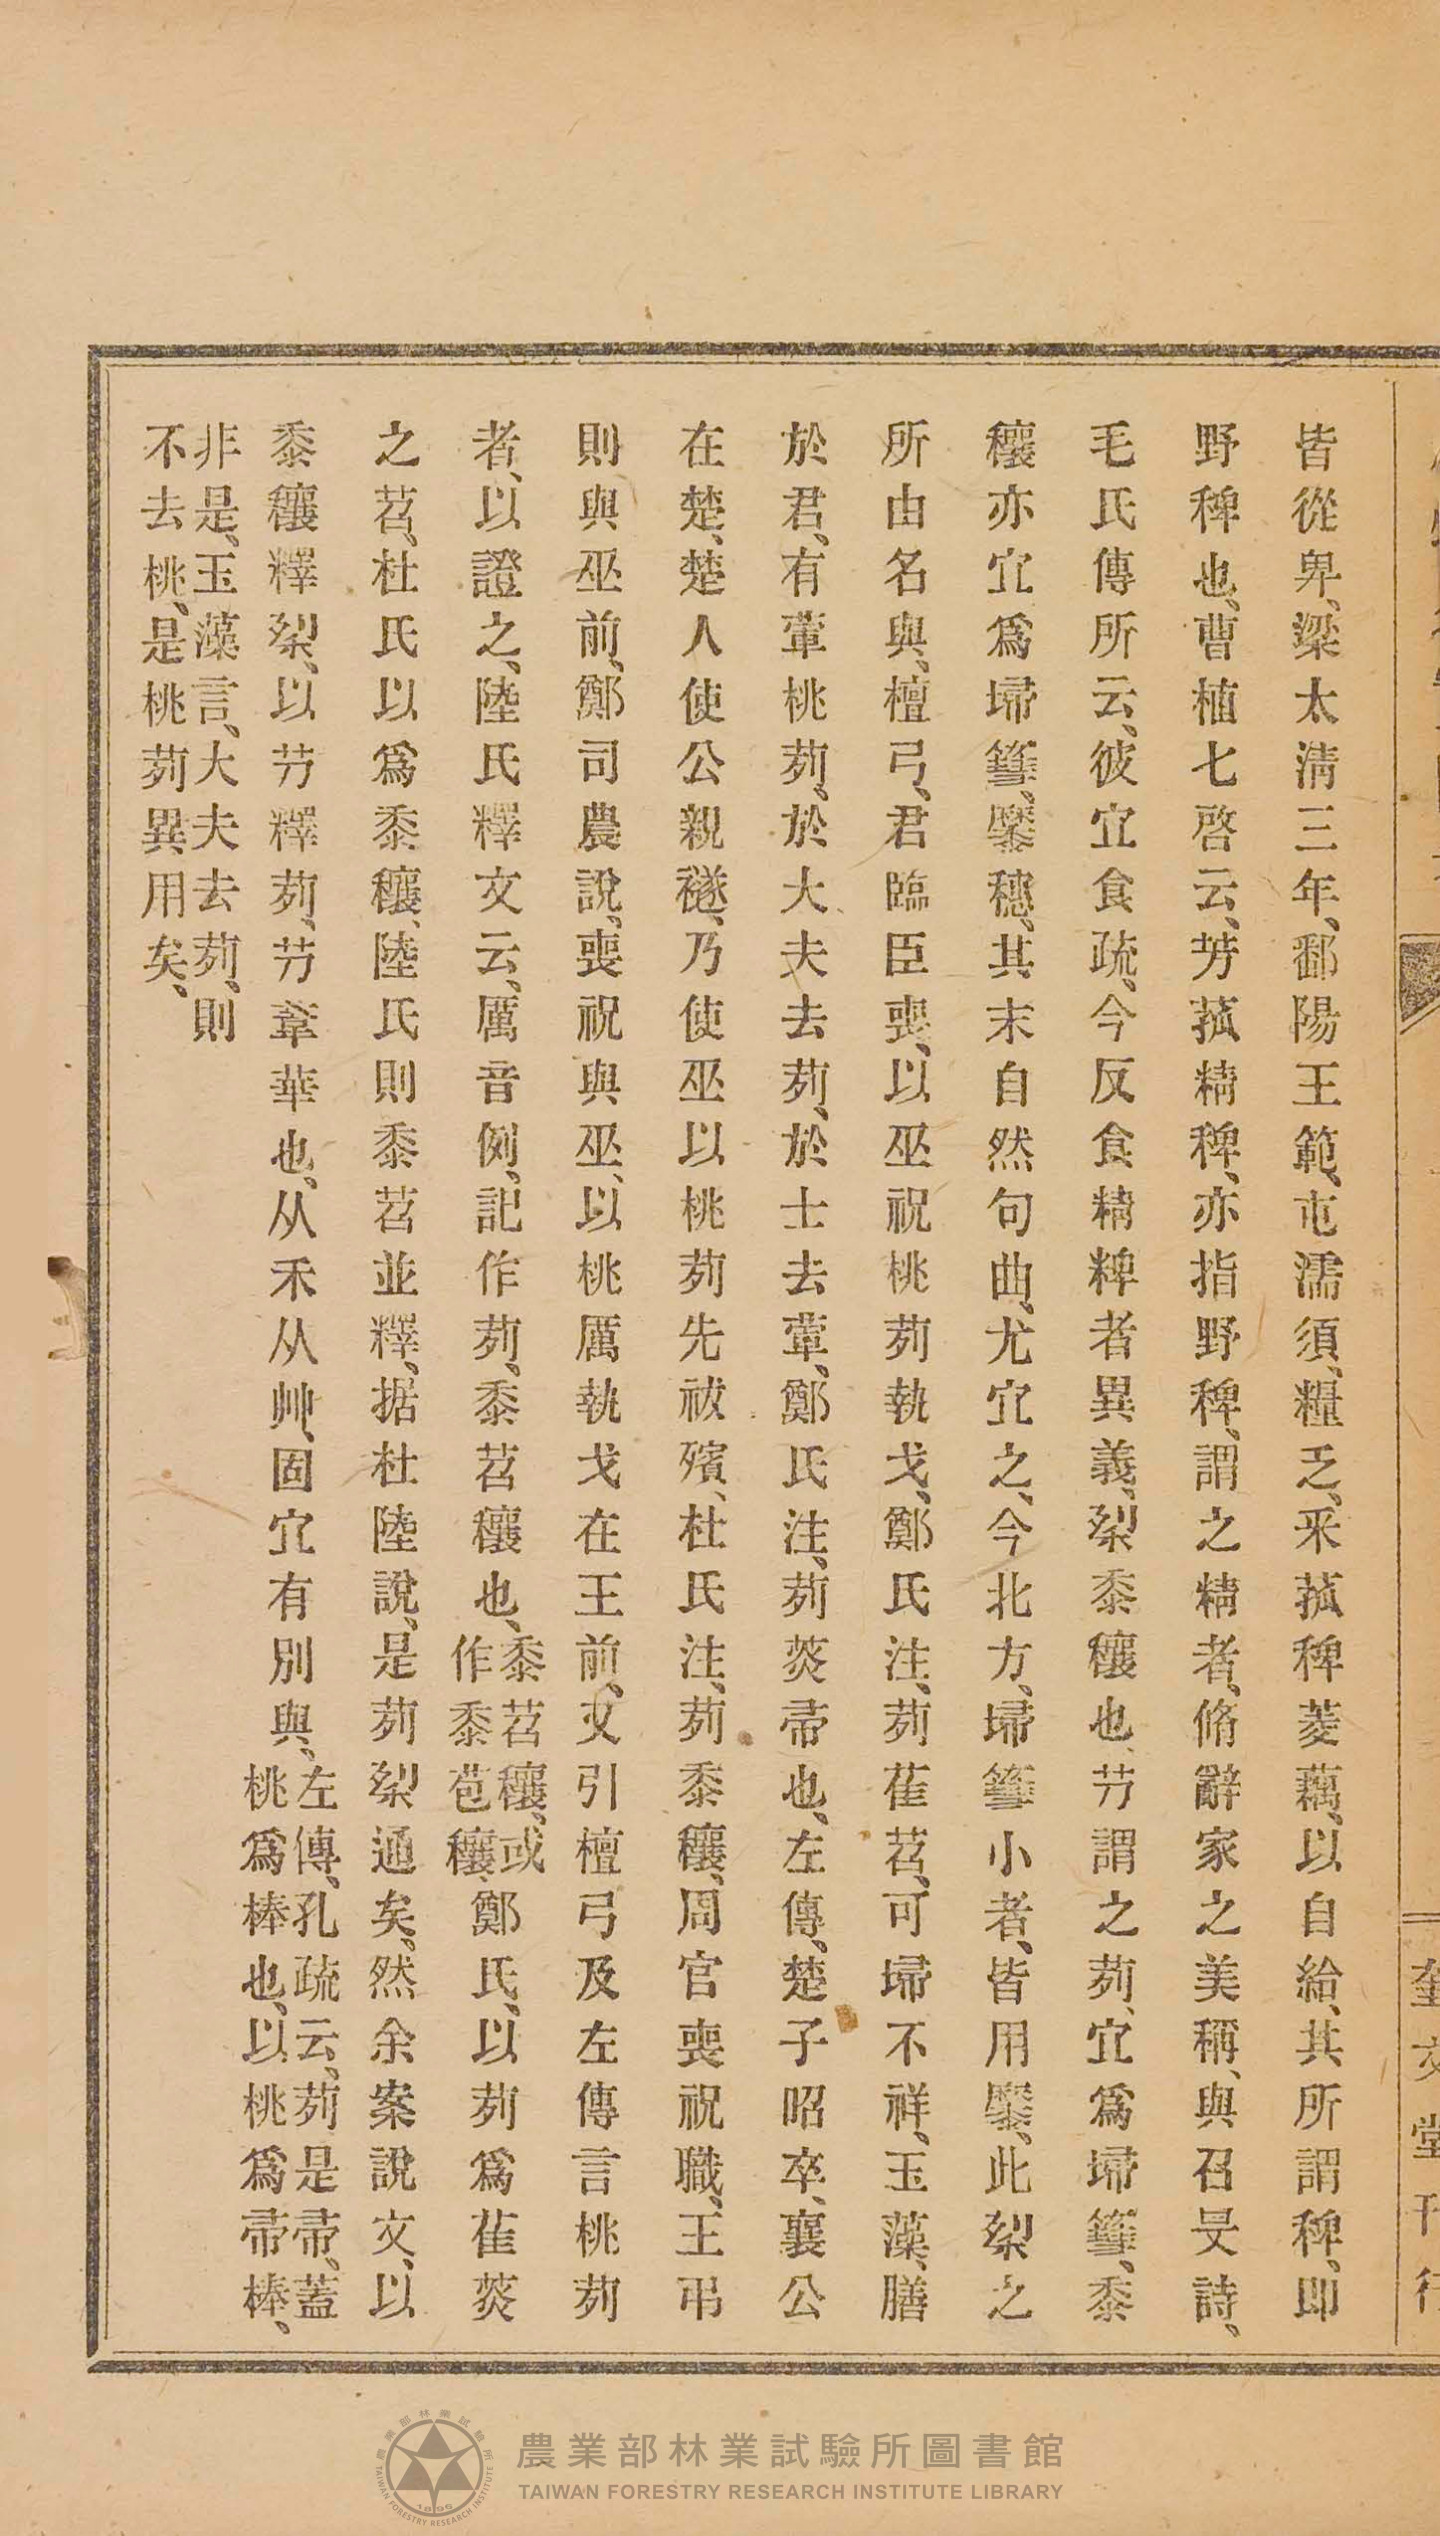 皆從卑、梁太淸三年、鄱陽王範、屯濡須、糧乏、采菰稗菱藕、以自給、其所謂稗、卽
野稗也、曹植七啓云、芳菰精稗、亦指野稗、謂之精者、脩辭家之美稱、與召旻詩、
毛氏傳所云、彼宜食疏、今反食精粺者異義、䅀黍穰也、芀謂之茢、宜爲埽篲、黍
穰亦宜爲埽篲、䅀穗、其末自然句曲、尤宜之、今北方、埽篲小者、皆用䅀、此䅀之
所由名與、檀弓、君臨臣喪、以巫祝桃茢執戈、鄭氏注、茢萑苕、可埽不祥、玉藻、膳
於君、有葷桃茢、於大夫去茢、於士去葷、鄭氏注、茢菼帚也、左傳、楚子昭卒、襄公
在楚、楚人使公親襚、乃使巫以桃茢先祓殯、杜氏注、茢黍穰、周官喪祝職、王弔
則與巫前、鄭司農說、喪祝與巫、以桃厲執戈在王前、又引檀弓及左傳言桃茢
者、以證之、陸氏釋文云、厲音例、記作茢、黍苕穰也、黍苕穰、或作黍苞穰、鄭氏、以茢爲萑菼
之苕、杜氏以爲黍穰、陸氏則黍苕並釋、据杜陸說、是茢䅀通矣、然余案說文、以
黍穰釋䅀、以芀釋茢、芀葦華也、从禾从艸、固宜有別與、左傳、孔疏云、茢是帚、蓋桃爲棒也、以桃爲帚棒、
非是、玉藻言、大夫去茢、則
不去桃、是桃茢異用矣、
奎文堂刊行
農業部林業試驗所圖書館
TAIWAN FORESTRY RESEARCH INSTITUTE LIBRARY